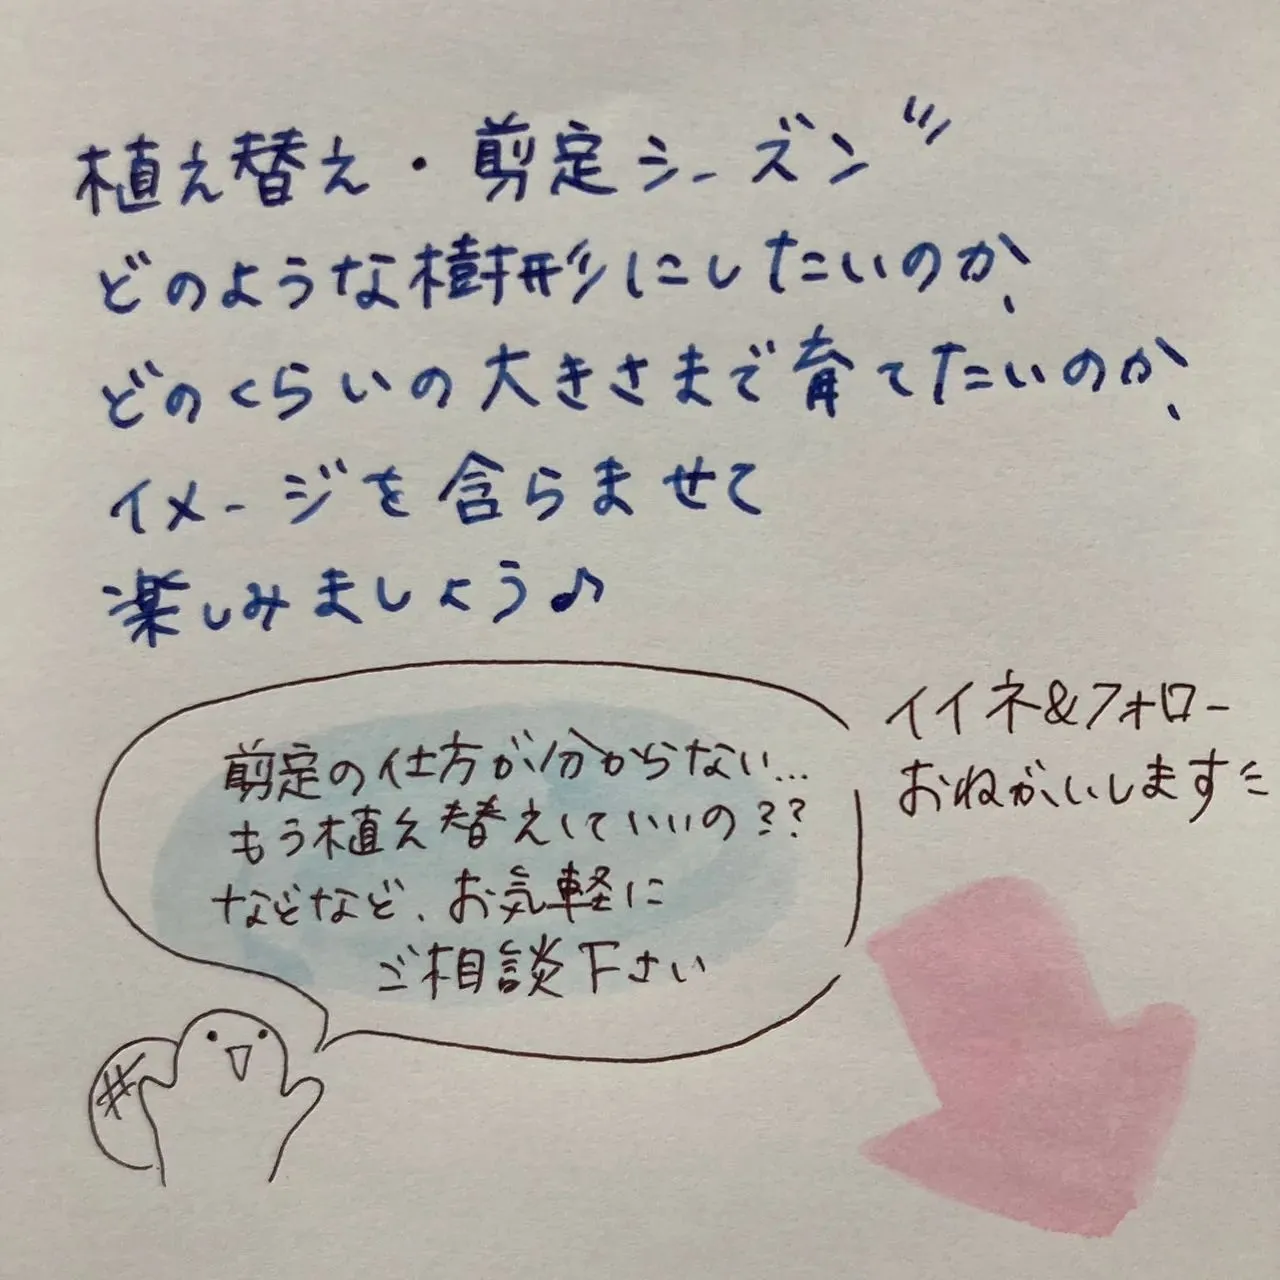 植え替え・剪定シーズン
どのような樹形にしたいのか、
どのくらいの大きさまで育てたいのか、
イメージを含らませて
楽しみましょう♪
剪定の仕方が分からない…
もう植え替えしていいの??
などなど、お気軽に
ご相談下さい
イイネ&フォロー
おねがいします